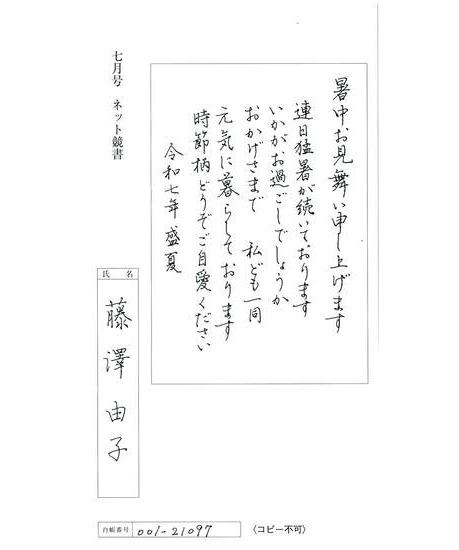 暑中お見舞い申し上げます
連日猛暑が続いております
いかがお過ごしでしょうか
おかげさまで 私ども一同
元気に暮らしております
時節柄どうぞご自愛ください
令和七年 盛夏
七月号 ネット競書
氏名
藤澤由子
台帳番号 001-21097
〈コピー不可〉